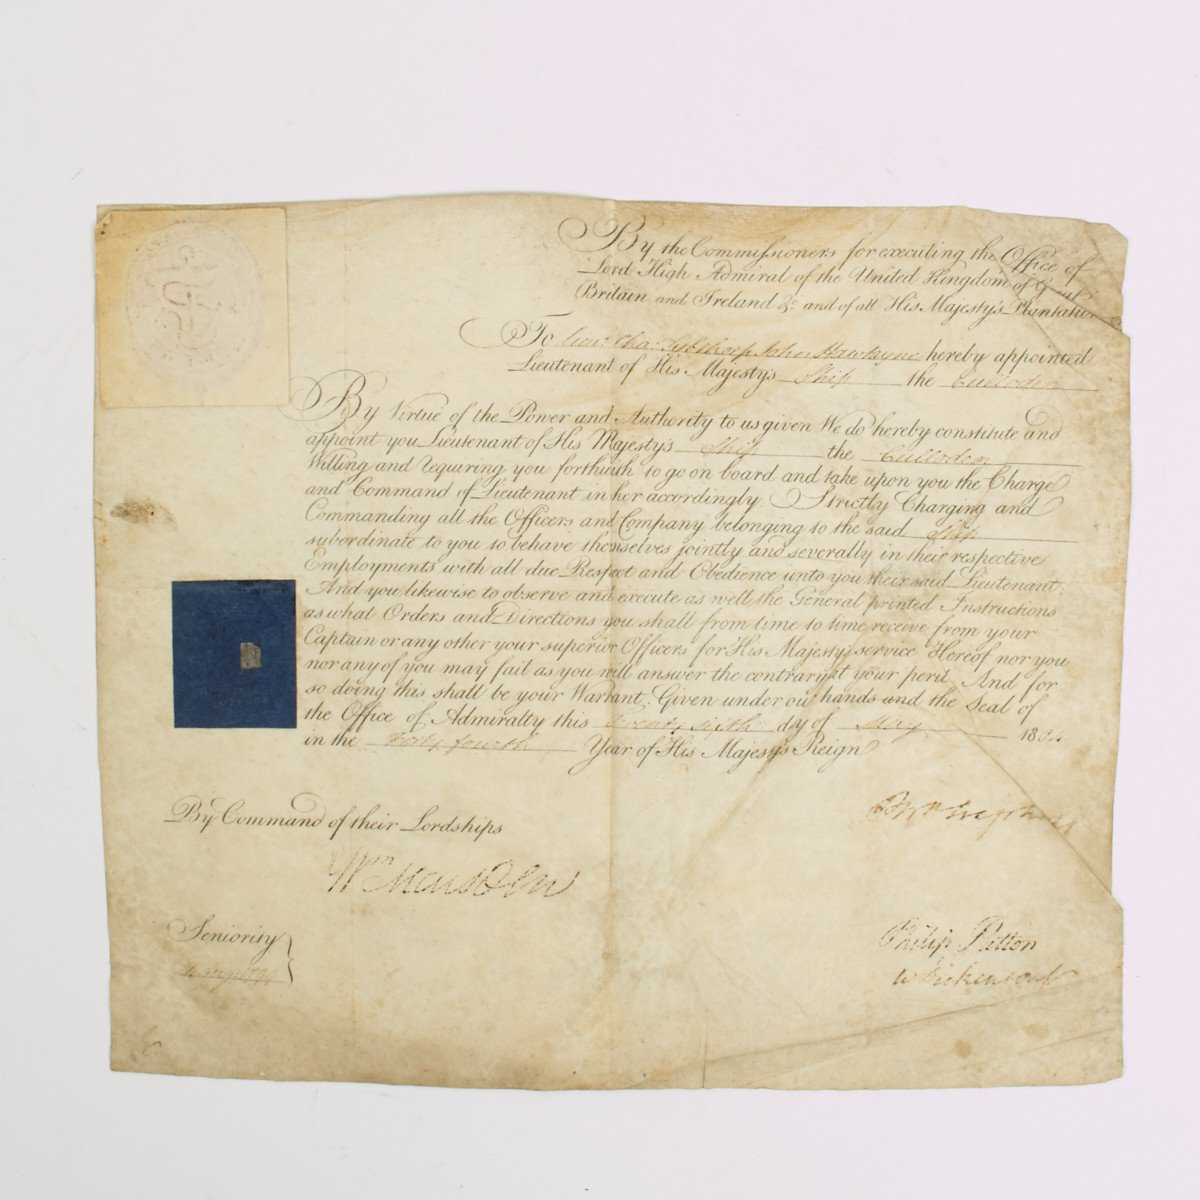 By the Commissioners for executing the Office of
Lord High Admiral of the United Kingdom of Great
Britain and Ireland &c. and of all His Majesty's Plantations
To Lieut. Cha. John Hawtayne hereby appointed
Lieutenant of His Majesty's Ship the Culloden
By Virtue of the Power and Authority to us given We do hereby constitute and
appoint you Lieutenant of His Majesty's Ship the Culloden
Willing and requiring you forthwith to go on board and take upon you the Charge
and Command of Lieutenant in her accordingly. Strictly Charging and
Commanding all the Officers and Company belonging to the said Ship
subordinate to you to behave themselves jointly and severally in their respective
Employments with all due Respect and Obedience unto you their said Lieutenant.
And you likewise to observe and execute as well the General printed Instructions
as what Orders and Directions you shall from time to time receive from your
Captain or any other your superior Officers for His Majesty's service Hereof nor you
nor any of you may fail as you will answer the contrary at your peril And for
so doing this shall be your Warrant. Given under our hands and the Seal of
the Office of Admiralty this twenty sixth day of May 180
in the Forty fourth Year of His Majesty's Reign
By Command of their Lordships
Wm Marsden
Seniority
Philip Patton
W Dickenson